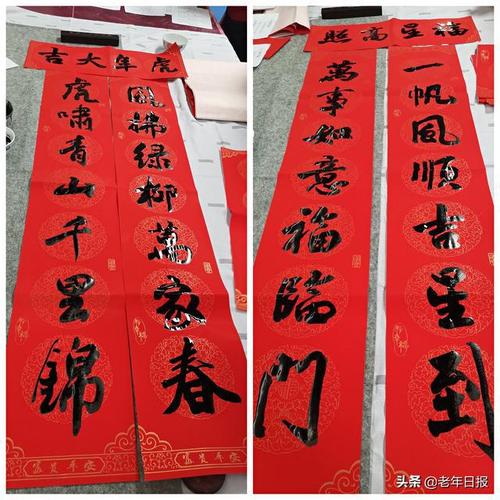 虎年大吉
風拂綠柳萬家春
虎嘯青山千里錦
福星高照
一帆風順吉星到
萬事如意福臨門
头条 @老年日报